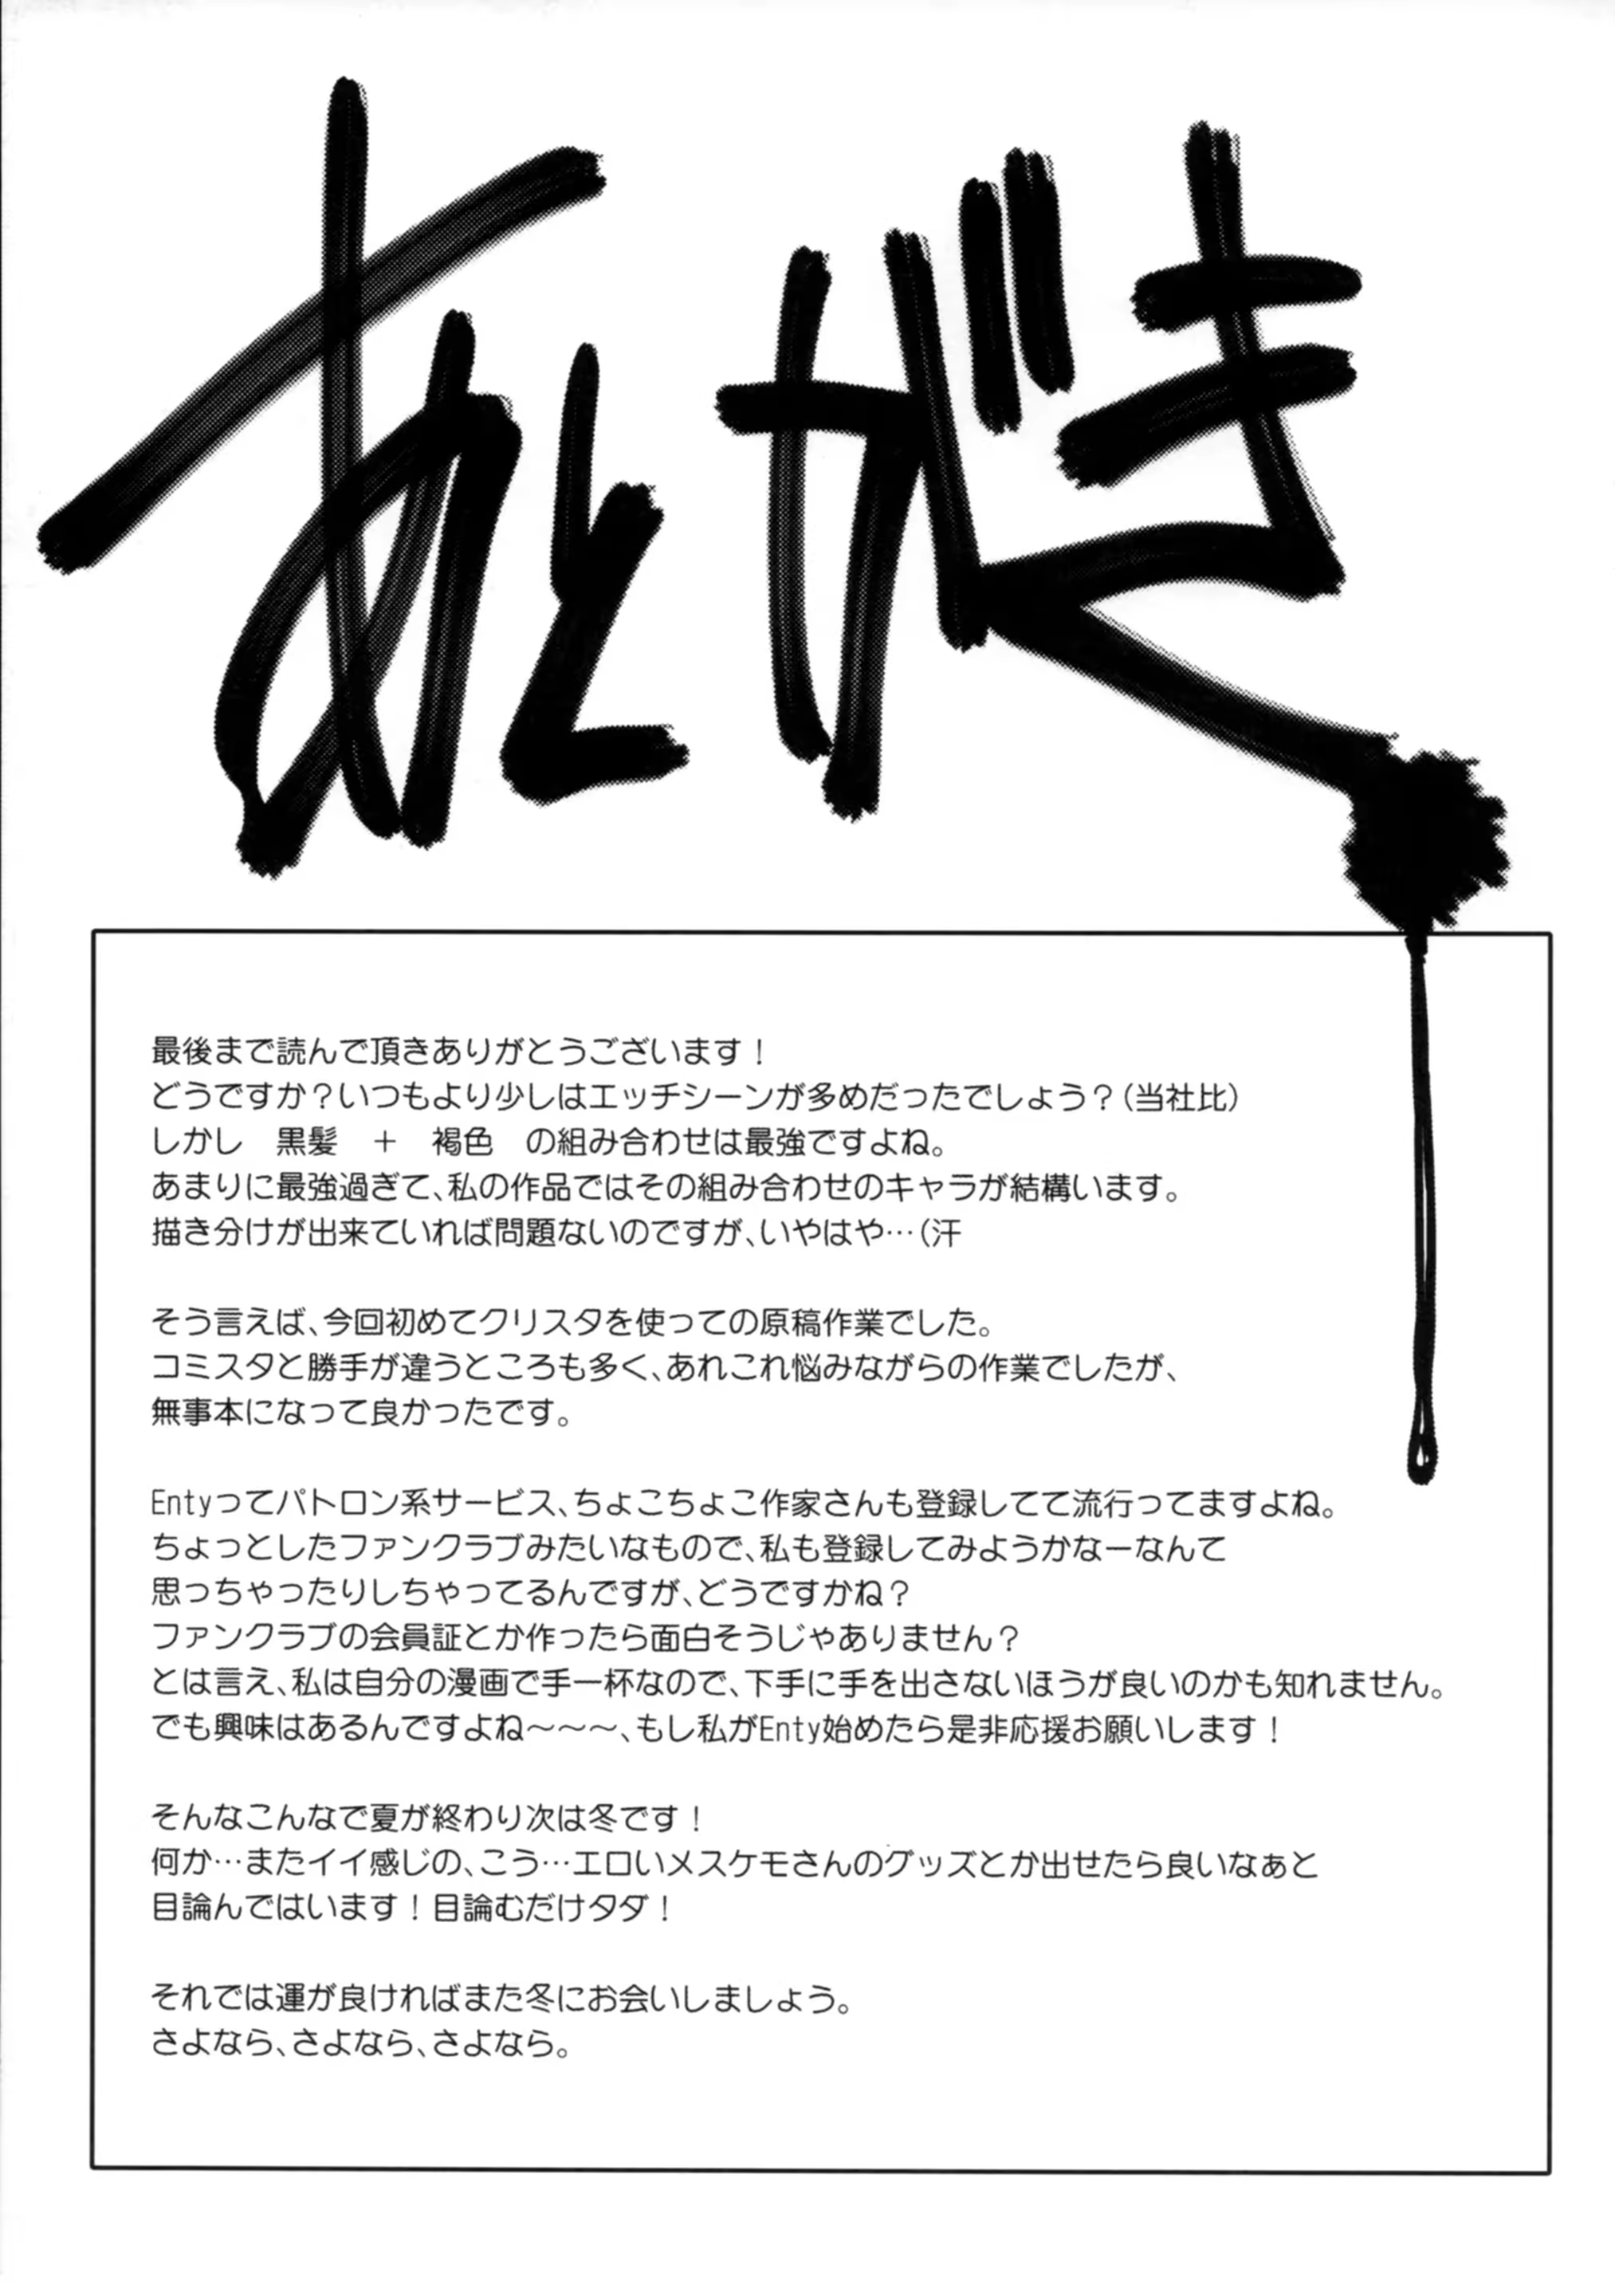 あとがき
最後まで読んで頂きありがとうございます！
どうですか？いつもより少しはエッチシーンが多めだったでしょう？（当社比）
しかし　黒髪　＋　褐色　の組み合わせは最強ですよね。
あまりに最強過ぎて、私の作品ではその組み合わせのキャラが結構います。
描き分けが出来ていれば問題ないのですが、いやはや…（汗
そう言えば、今回初めてクリスタを使っての原稿作業でした。
コミスタと勝手が違うところも多く、あれこれ悩みながらの作業でしたが、
無事本になって良かったです。
Entyってパトロン系サービス、ちょこちょこ作家さんも登録してて流行ってますよね。
ちょっとしたファンクラブみたいなもので、私も登録してみようかなーなんて
思っちゃったりしちゃってるんですが、どうですかね？
ファンクラブの会員証とか作ったら面白そうじゃありません？
とは言え、私は自分の漫画で手一杯なので、下手に手を出さないほうが良いのかも知れません。
でも興味はあるんですよね～～～、もし私がEnty始めたら是非応援お願いします！
そんなこんなで夏が終わり次は冬です！
何か…またイイ感じの、こう…エロいメスケモさんのグッズとか出せたら良いなぁと
目論んではいます！目論むだけタダ！
それでは運が良ければまた冬にお会いしましょう。
さよなら、さよなら、さよなら。